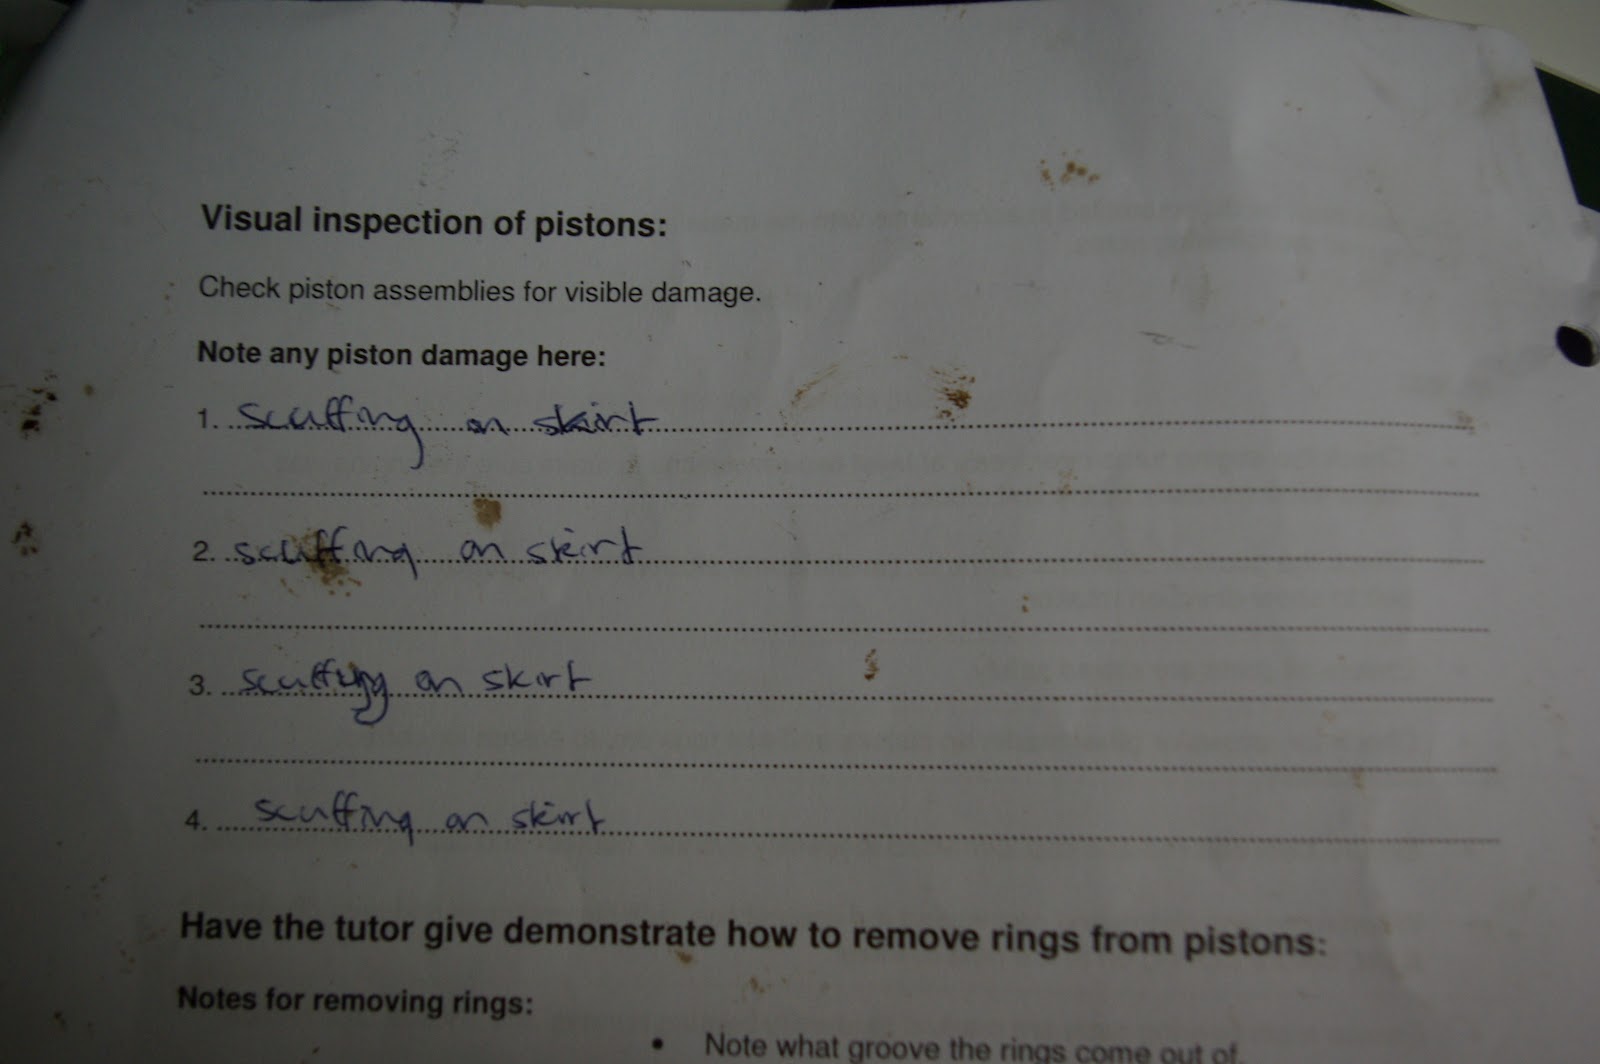 Visual inspection of pistons:
Check piston assemblies for visible damage.
Note any piston damage here:
1. scuffing on skirt
2. scuffing on skirt
3. scuffing on skirt
4. scuffing on skirt
Have the tutor give demonstrate how to remove rings from pistons:
Notes for removing rings:
• Note what groove the rings come out of.